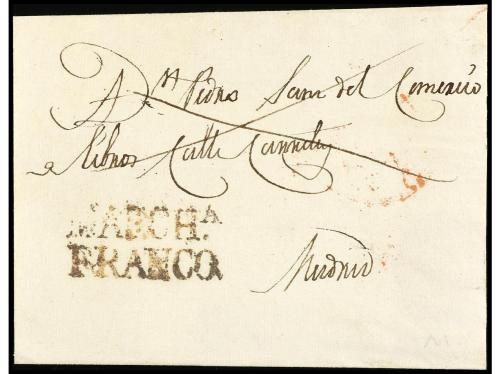 A Dn Pedro Sanz del Comercio
de libros Calle
MARCHA.
FRANCO.
Madrid